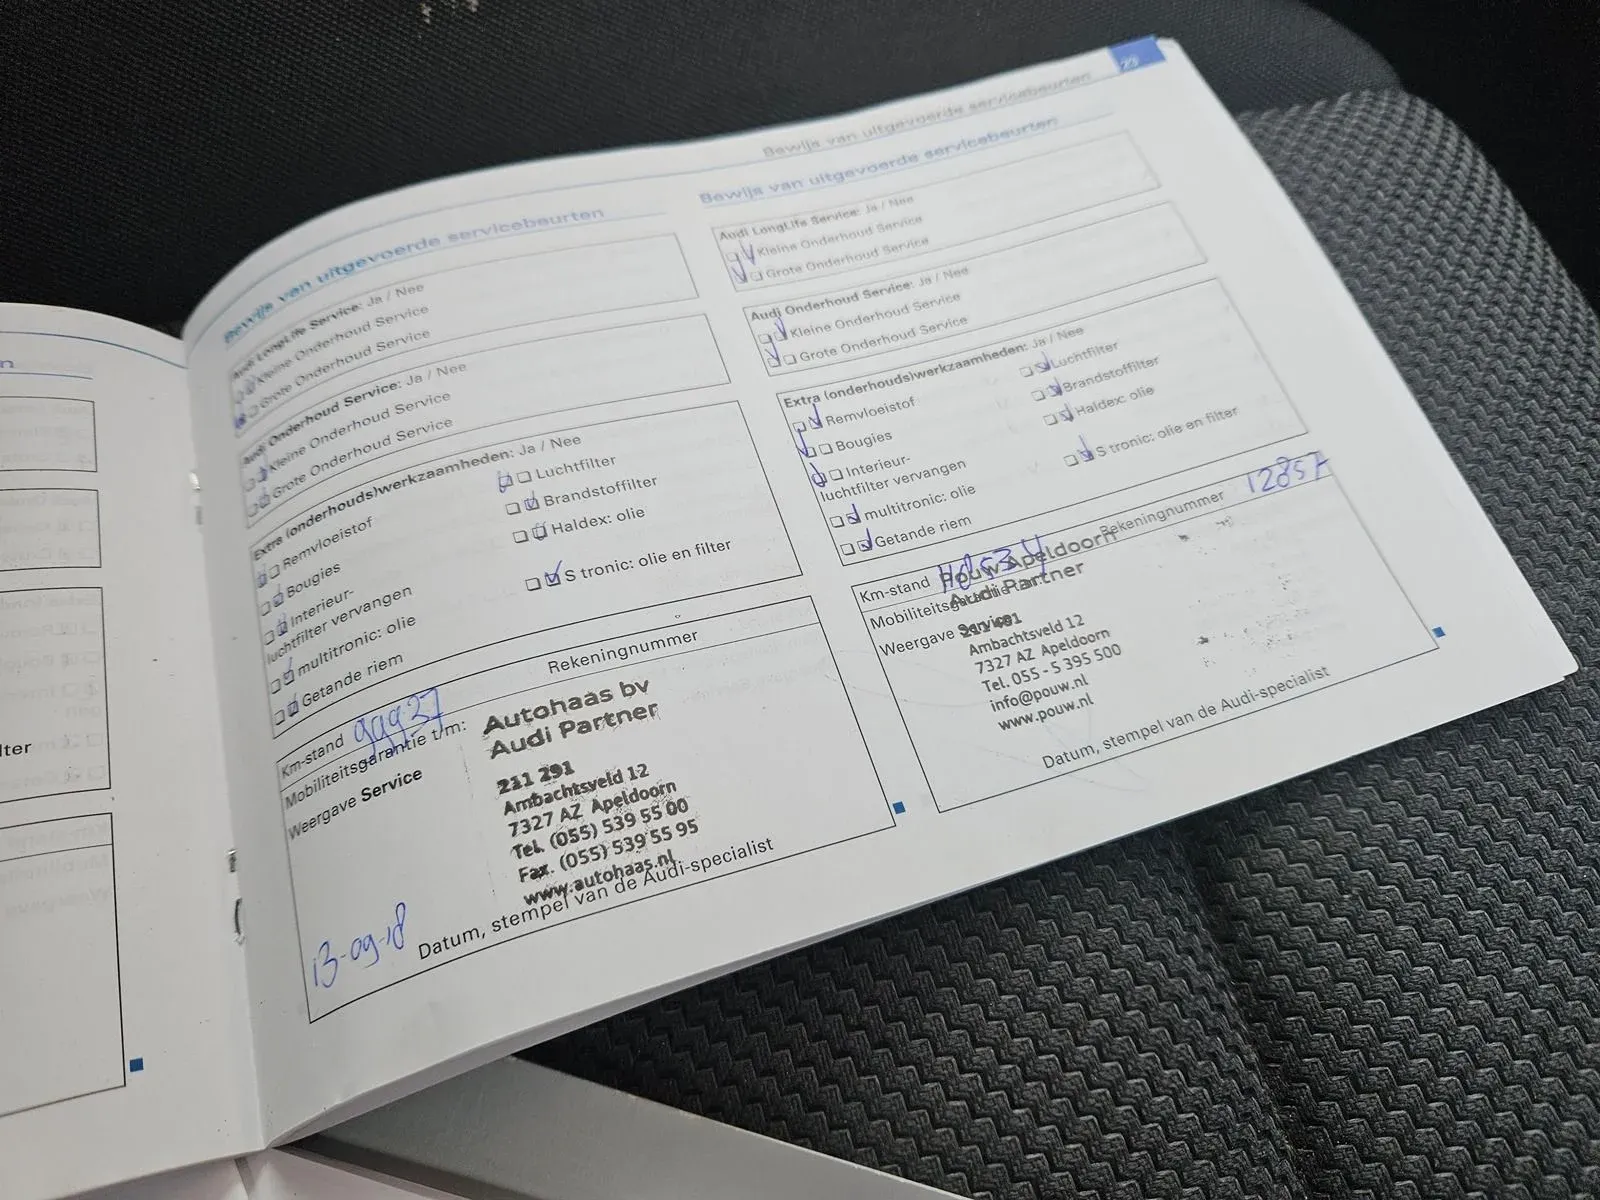 n
lter
Bewijs van uitgevoerde servicebeurten
Audi LongLife Service: Ja / Nee
Kleine Onderhoud Service
Grote Onderhoud Service
Audi Onderhoud Service: Ja / Nee
Kleine Onderhoud Service
Grote Onderhoud Service
Extra (onderhouds)werkzaamheden: Ja / Nee
Remvloeistof
Bougies
Interieur-
luchtfilter vervangen
multitronic: olie
Getande riem
Luchtfilter
Brandstoffilter
Haldex: olie
S tronic: olie en filter
Km-stand 99937
Rekeningnummer
Mobiliteitsgarantie t/m:
Weergave Service
Autohaas bv
Audi Partner
211 291
Ambachtsveld 12
7327 AZ Apeldoorn
Tel. (055) 539 55 00
Fax. (055) 539 55 95
www.autohaas.nl
13-09-18
Datum, stempel van de Audi-specialist
Bewijs van uitgevoerde servicebeurten
Bewijs van uitgevoerde servicebeurten
Audi LongLife Service: Ja / Nee
Kleine Onderhoud Service
Grote Onderhoud Service
Audi Onderhoud Service: Ja / Nee
Kleine Onderhoud Service
Grote Onderhoud Service
Extra (onderhouds)werkzaamheden: Ja / Nee
Remvloeistof
Bougies
Interieur-
luchtfilter vervangen
multitronic: olie
Getande riem
Luchtfilter
Brandstoffilter
Haldex: olie
S tronic: olie en filter
Km-stand
Rekeningnummer
Weergave Service
Pouw Apeldoorn
Audi Partner
Ambachtsveld 12
7327 AZ Apeldoorn
Tel. 055 - 5 395 500
info@pouw.nl
www.pouw.nl
Datum, stempel van de Audi-specialist